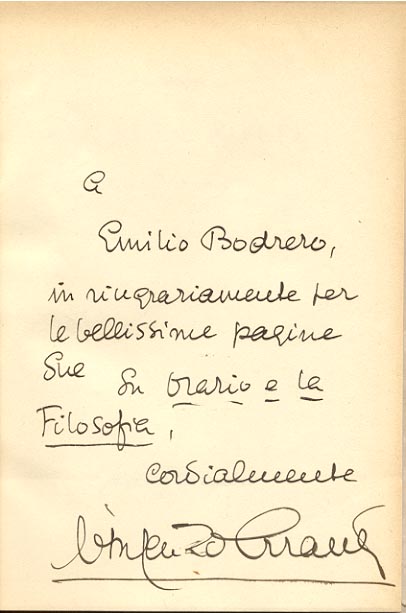 A
Emilio Bodrero,
in ringraziamento per
le bellissime pagine
Sue su Orazio e la
Filosofia,
cordialmente
Vincenzo Errante